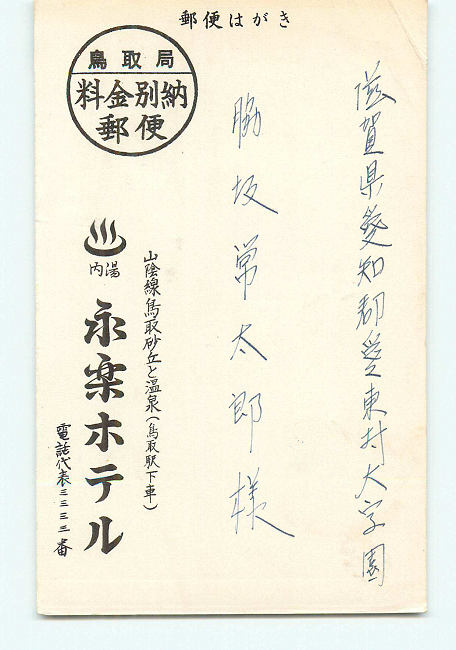 郵便はがき
滋賀県愛知郡愛東村大字園
脇坂常太郎様
鳥取局
料金別納
郵便
山陰線鳥取砂丘と温泉(鳥取駅下車)
内湯
永楽ホテル
電話代表三三三三番